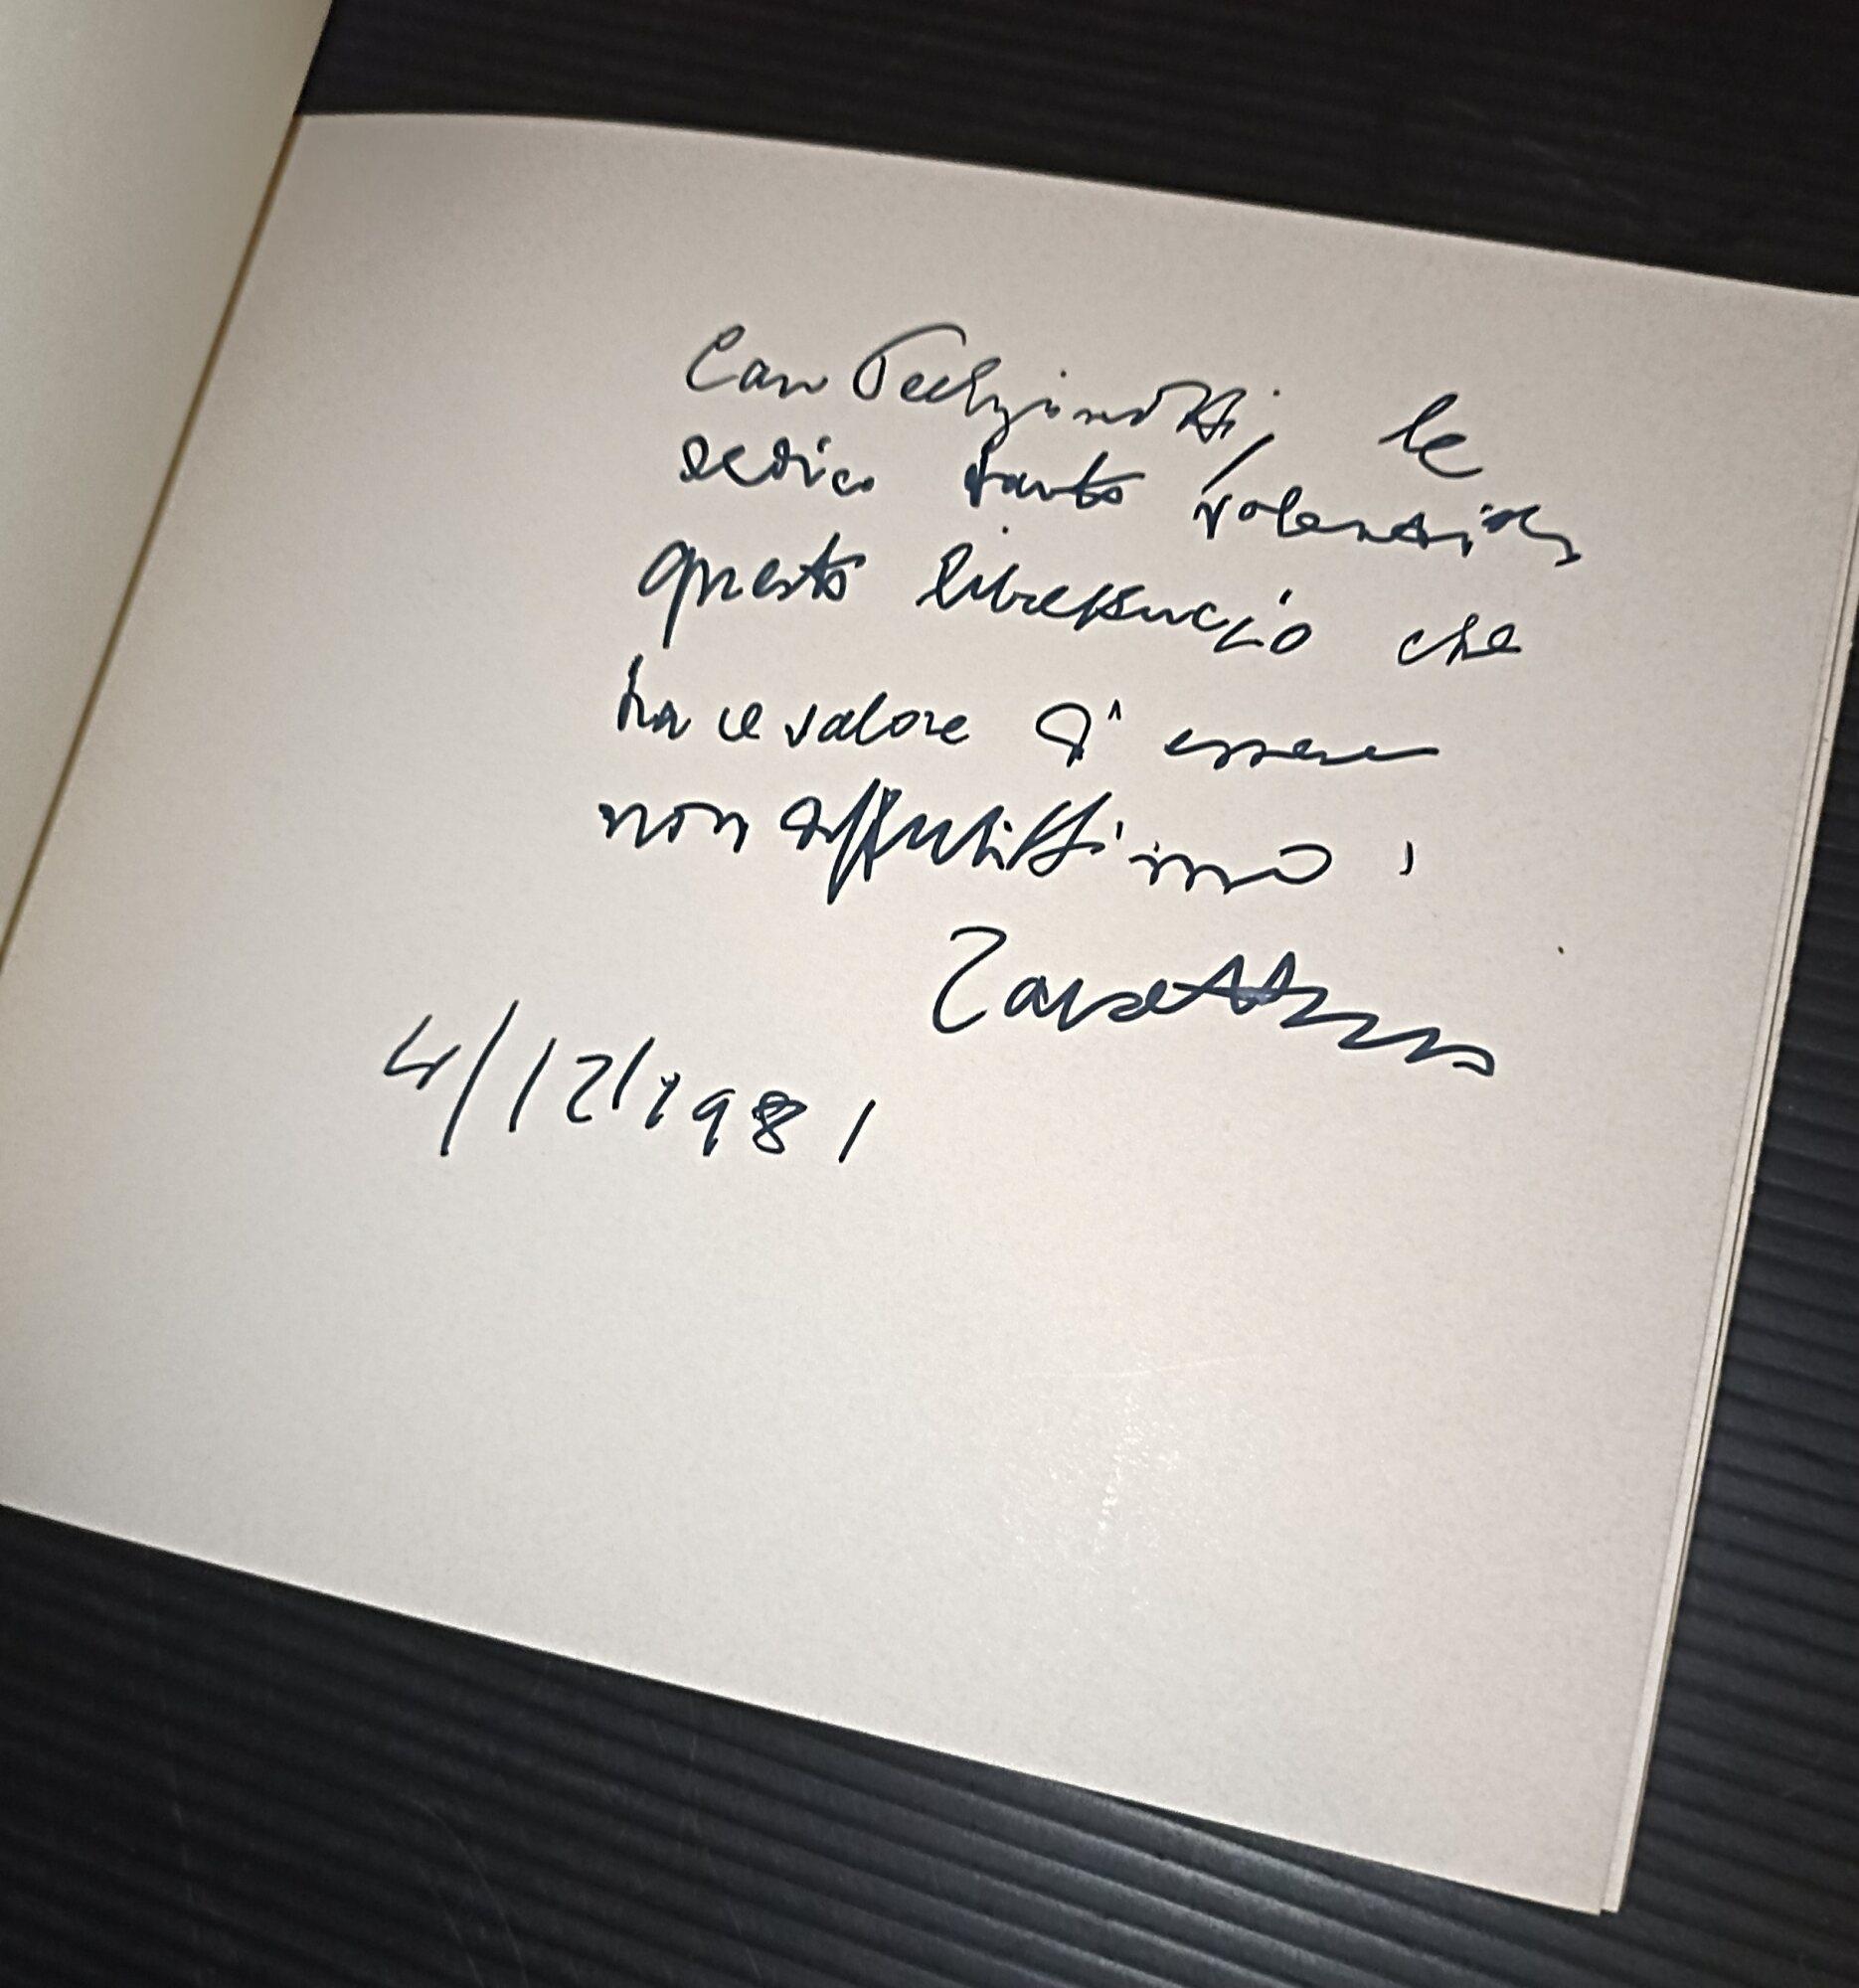 Caro le
dedico tanto volentieri
questo libretuccio che
ha il valore d'essere
non affrettatissimo!
Zavattini
4/12/1981